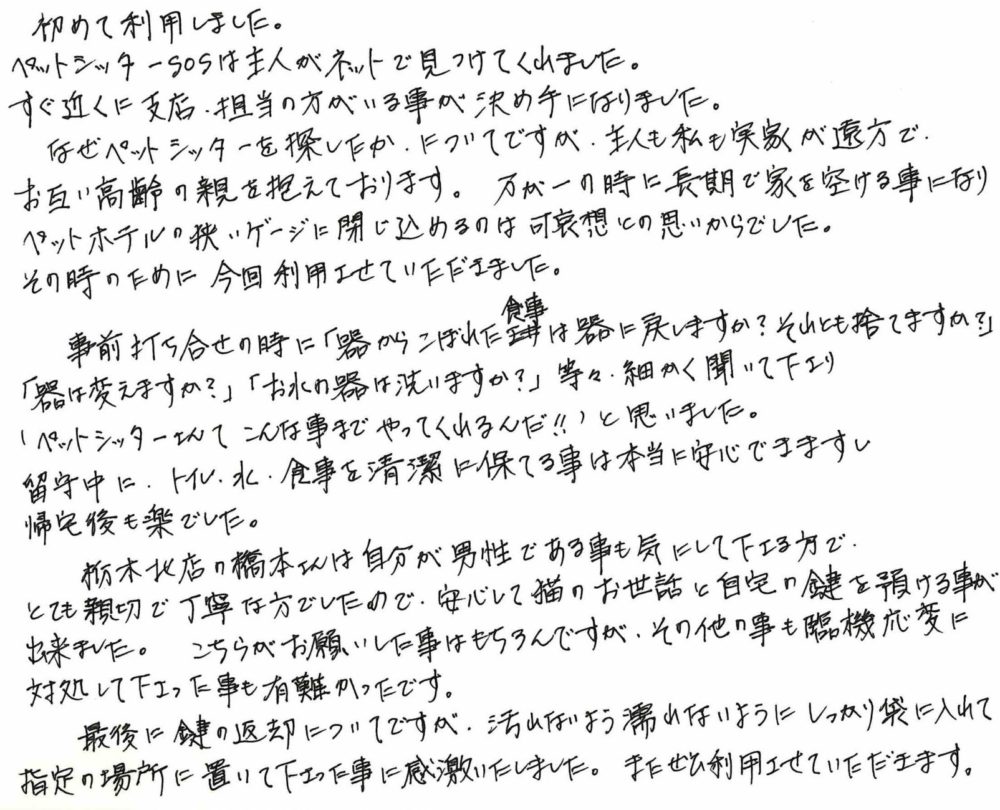 初めて利用しました。
ペットシッターSOSは主人がネットで見つけてくれました。
すぐ近くに支店、担当の方がいる事が決め手になりました。
なぜペットシッターを探したか、についてですが、主人も私も実家が遠方で、
お互い高齢の親を抱えております。 万が一の時に長期で家を空ける事になり
ペットホテルの狭いゲージに閉じ込めるのは可哀想との思いからでした。
その時のために今回利用させていただきました。
事前打ち合せの時に「器からこぼれた食事は器に戻しますか?それとも捨てますか?」
「器は変えますか?」「お水の器は洗いますか?」等々、細かく聞いて下さり
(ペットシッターさんてこんな事までやってくれるんだ!!)と思いました。
留守中に、トイレ、水、食事を清潔に保てる事は本当に安心できますし
帰宅後も楽でした。
栃木北店の橋本さんは自分が男性である事も気にして下さる方で、
とても親切で丁寧な方でしたので、安心して猫のお世話と自宅の鍵を預ける事が
出来ました。 こちらがお願いした事はもちろんですが、その他の事も臨機応変に
対処して下さった事も有難かったです。
最後に鍵の返却についてですが、汚れないよう濡れないようにしっかり袋に入れて
指定の場所に置いて下さった事に感激いたしました。またぜひ利用させていただきます。